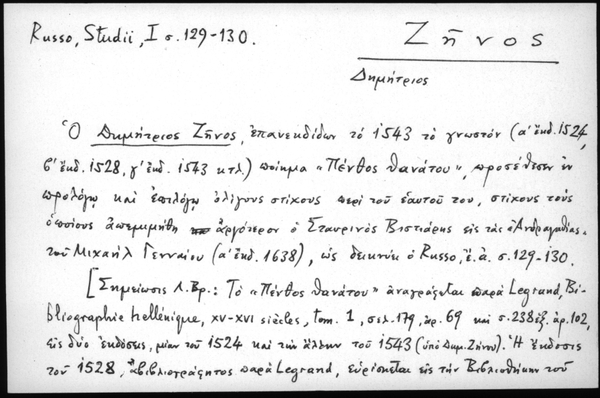 Russo, Studii, I σ. 129-130.
Ζῆνος
Δημήτριος
Ὁ Δημήτριος Ζῆνος, ἐπανεκδίδων τό 1543 τό γνωστόν (α' ἐκδ. 1524,
β' ἐκδ. 1528, γ' ἐκδ. 1543 κτλ) ποίημα «Πένθος θανάτου», προσέθεσεν ἐν
προλόγῳ καί ἐπιλόγῳ ὀλίγους στίχους περί τοῦ ἑαυτοῦ του, στίχους τούς
ὁποίους ἀπεμιμήθη ἀργότερον ὁ Σταυρινός Βιστιάρης εἰς τάς «Ἀνδραγαθίας»
τοῦ Μιχαήλ Γενναίου (α' ἐκδ. 1638), ὡς δεικνύει ὁ Russo, ἔ. ἀ. σ. 129-130.
[Σημείωσις Λ. Βρ.: Τό «Πένθος θανάτου» ἀναγράφεται παρά Legrand, Bi-
bliographie hellénique, XV-XVI siècles, tom. 1, σελ. 179, ἀρ. 69 καί σ. 238 ἑξ. ἀρ. 102,
εἰς δύο ἐκδόσεις, μίαν τοῦ 1524 καί τήν ἄλλην τοῦ 1543 (ὑπό Δημ. Ζήνου). Ἡ ἔκδοσις
τοῦ 1528, ἀβιβλιογράφητος παρά Legrand, εὑρίσκεται εἰς τήν Βιβλιοθήκην τοῦ